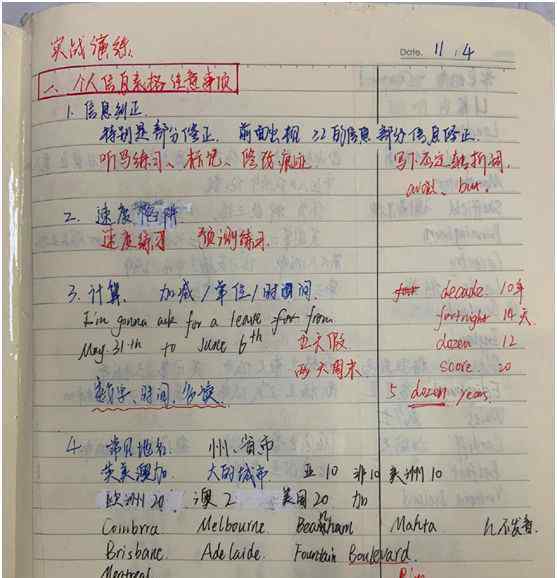 实战演练
Date. 11.4
一、个人信息表格注意事项
1. 信息纠正.
特别是部分修正. 前面出现 22的信息 部分信息修正.
听写练习、标记、修改痕迹 写下否定转折词.
avoid, but.
2. 速度陷阱
速度练习 预测练习.
3. 计算. 加减/单位/时间. decade. 10年
I'm gonna ask for a leave from fortnight 14天
May 31th to June 6th 五天假 dozen 12
两天周末 score 20
数字、时间、多读 5 dozen years.
4. 常见地名. 州、省市
英美澳加. 大的城市 亚10 非10 美洲10
欧洲20 澳2 美国20 加
Melbourne. h不发音.
Brisbane Adelaide. Fountain Boulevard.
Montreal